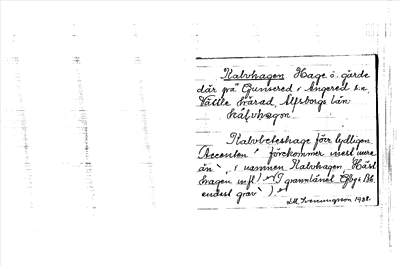 Kalvhagen Hage ö. gärde
där på Gunnered i Angered s:n,
Vättle härad, Älfsborgs län
kálvhagen
Kalvbeteshage förr tydligen.
Accenten ´ förekommer mest mera
än `, i namnen Kalvhagen, Häst
hagen m.fl. I grannlänet
endast grav `)
1932.